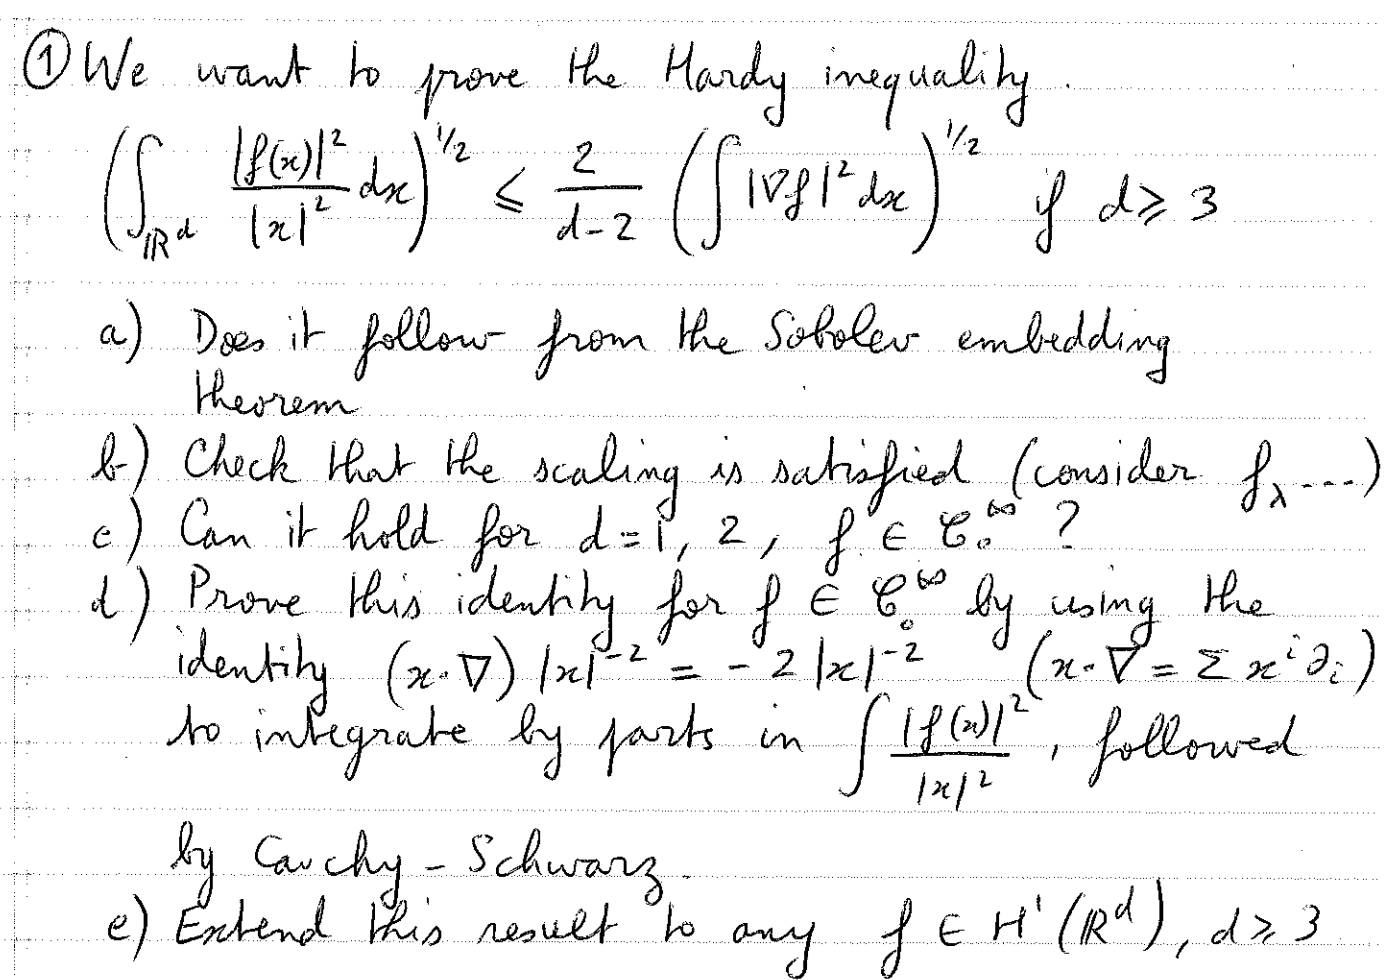 ① We want to prove the Hardy inequality.
(∫_{ℝ^d} |f(x)|²/|x|² dx)^{1/2} ≤ 2/(d-2) (∫ |∇f|² dx)^{1/2} if d ≥ 3
a) Does it follow from the Sobolev embedding
theorem
b) Check that the scaling is satisfied (consider f_λ ---)
c) Can it hold for d=1, 2, f ∈ C₀^∞ ?
d) Prove this identity for f ∈ C₀^∞ by using the
identity (x·∇) |x|^{-2} = -2 |x|^{-2} (x·∇ = Σ x^i ∂_i)
to integrate by parts in ∫ |f(x)|²/|x|², followed
by Cauchy-Schwarz.
e) Extend this result to any f ∈ H¹(ℝ^d), d ≥ 3